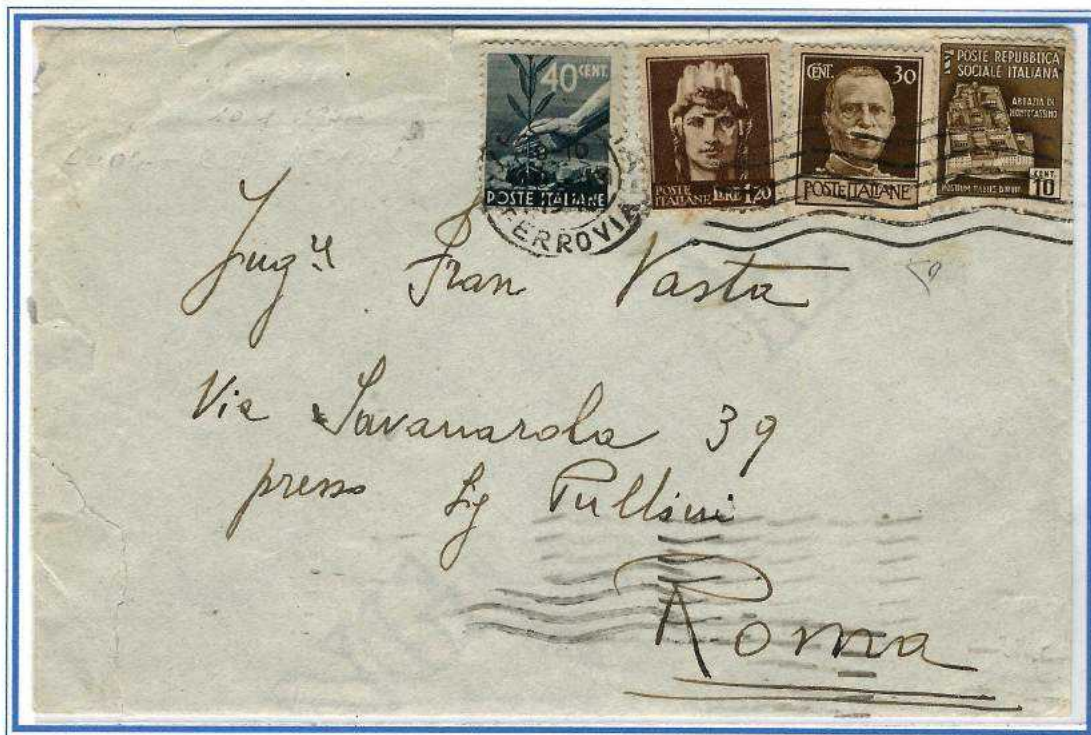 40 CENT.
POSTE ITALIANE
POSTE ITALIANE LIRE 1,20
CENT. 30
POSTE ITALIANE
POSTE REPUBBLICA
SOCIALE ITALIANA
ABBAZIA DI
MONTECASSINO
CENT. 10
FERROVIA
Fran Vasta
Via Savanarola 39
presso Sig Pullini
Roma